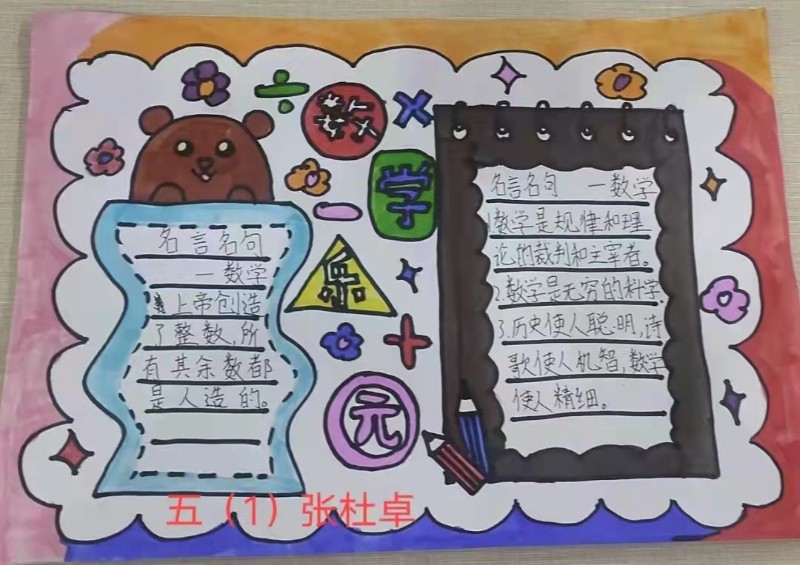 数
学
乐
元
名言名句
一数学
上帝创造
了整数,所
有其余数都
是人造的。
名言名句 一数学
1数学是规律和理
论的裁判和主宰者。
2.数学是无穷的科学.
3.历史使人聪明,诗
歌使人机智,数学
使人精细。
五（1）张杜卓